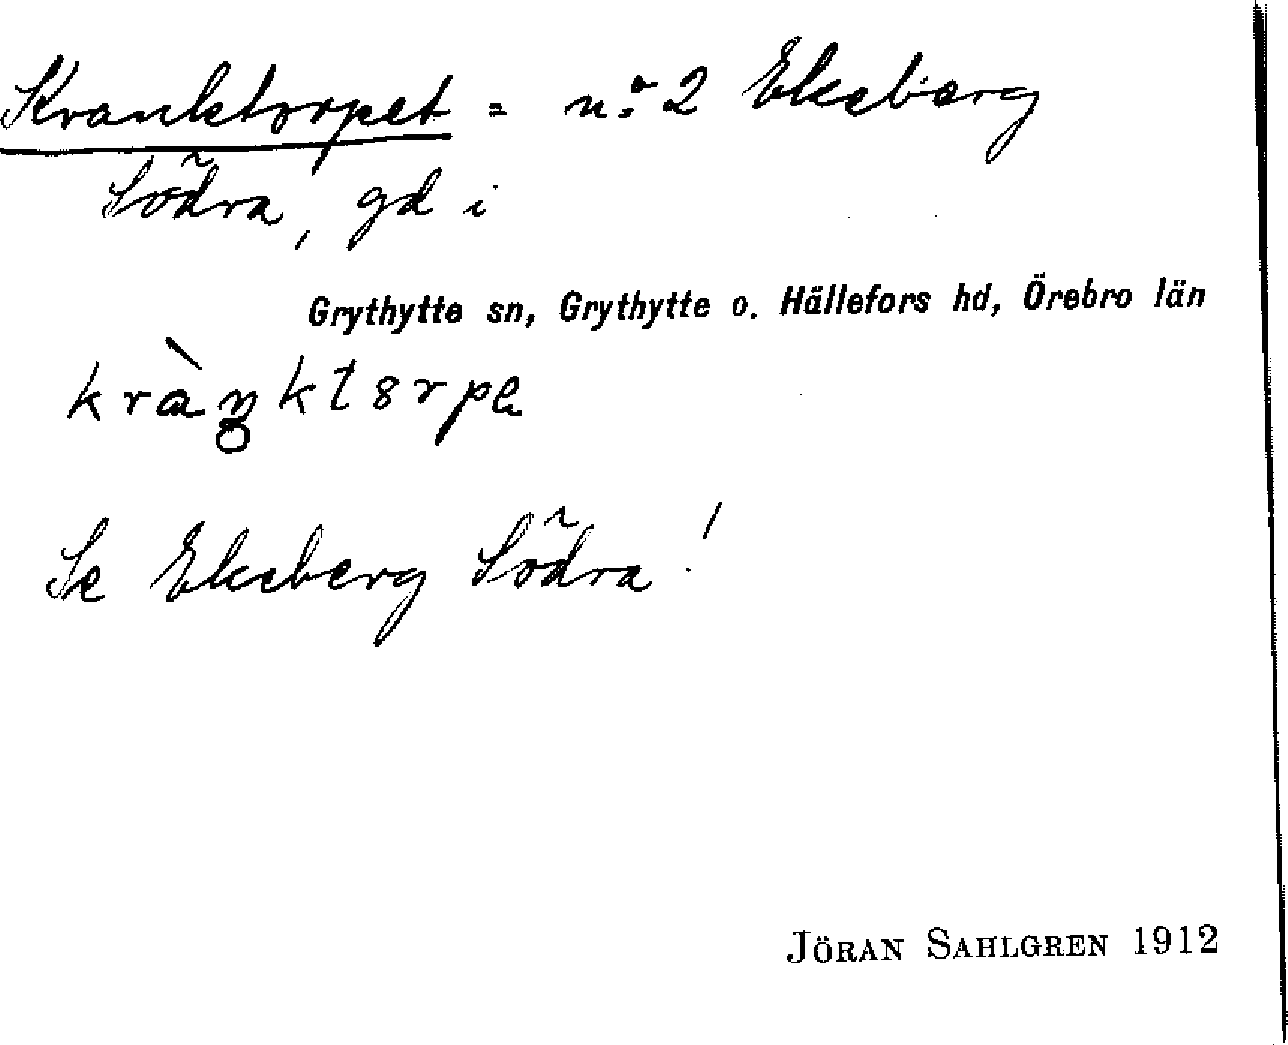 Kranktorpet = n:o 2 Ekeberg
Södra, gd i
Grythytte sn, Grythytte o. Hällefors hd, Örebro län
Se Ekeberg Södra!
JÖRAN SAHLGREN 1912